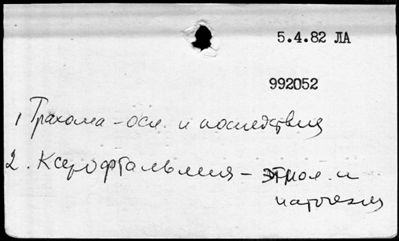 5.4.82 ЛА
992052
1 Трахома - осл. и последствия
2. Ксерофтальмия - этиол. и
патогенез